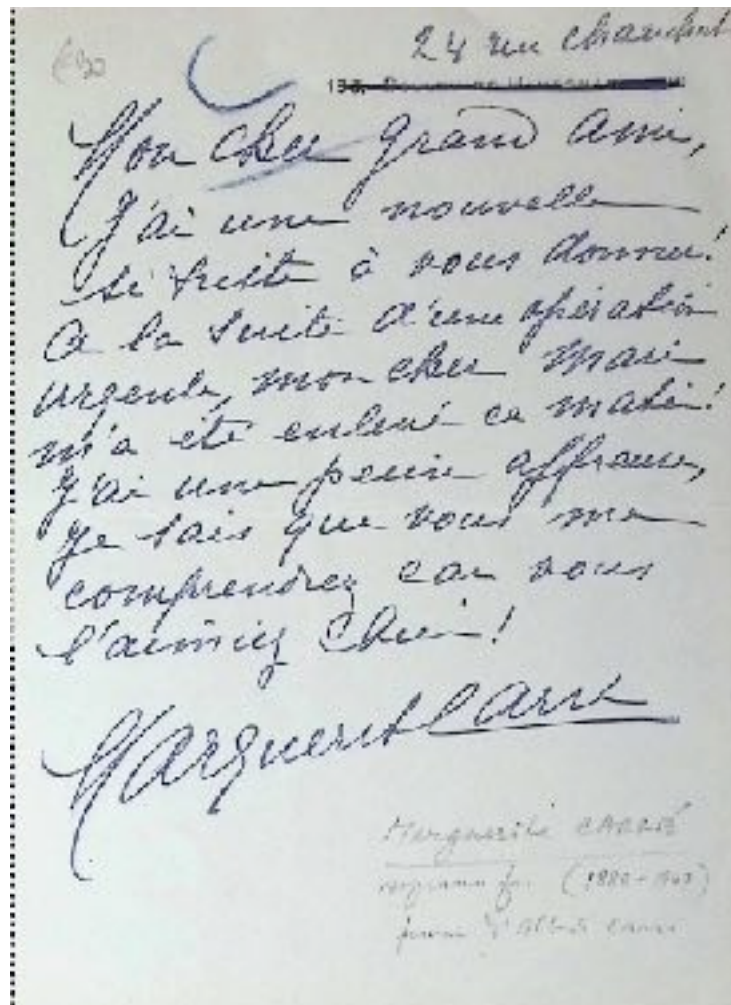 €30
24 rue Chauchat
Mon cher grand ami,
J'ai une nouvelle
si triste à vous donner!
A la suite d'une opération
urgente, mon cher mari
m'a été enlevé ce matin!
J'ai une peine affreuse,
Je sais que vous me
comprendrez car vous
l'aimiez
Marguerite Carré
Marguerite CARRÉ
soprano fr.
femme d'Albert Carré